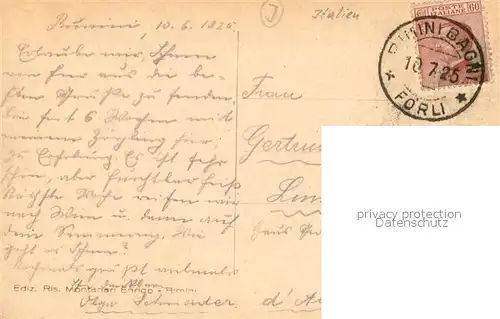 Rimini, 10.6.1925.
Italien
Erlaube mir, Ihnen
von hier aus die be-
sten Grüße zu senden.
Bin seit 6 Wochen mit
meinem Zögling hier,
zur Erholung. Es ist sehr
schön, aber furchtbar heiß
Nächste Woche reisen wir
nach Wien u. dann auf
den Semmering. Wie
geht es Ihnen?
Nochmals
Olga
Ediz. Ris. Montanari Enrico - Rimini
POSTE ITALIANE
60
RIMINI BAGNI
10.7.25
* FORLI *
Frau
Gertru
Lin
d'A
privacy protection
Datenschutz